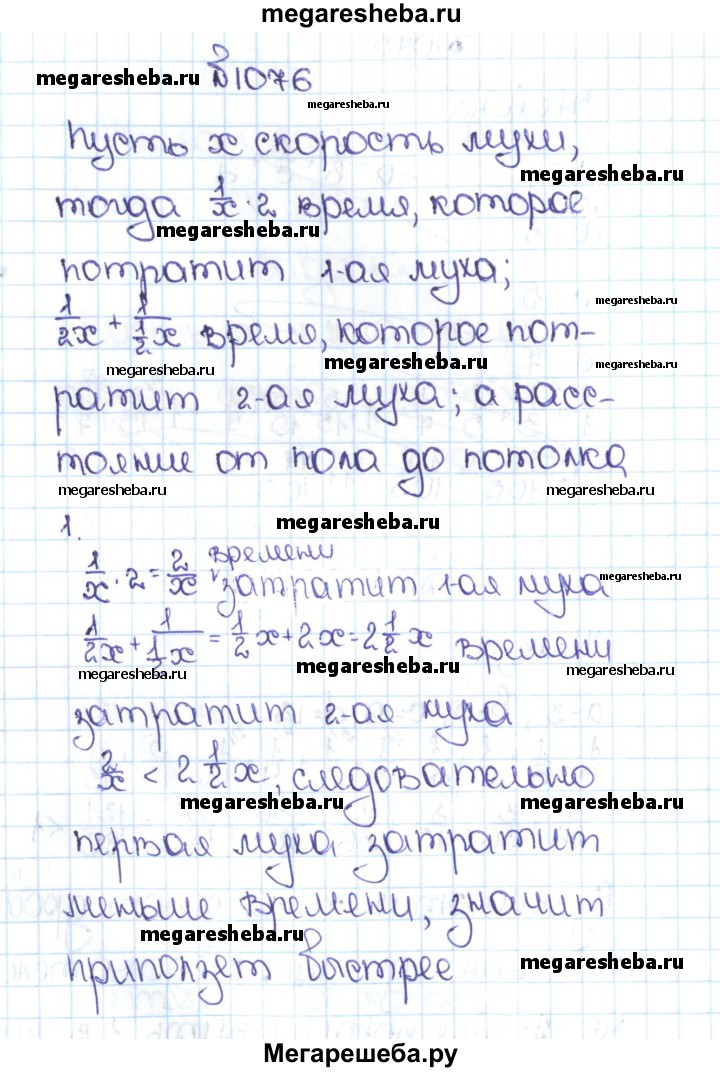 megaresheba.ru
№1076
megaresheba.ru
megaresheba.ru
пусть x скорость мухи,
megaresheba.ru
тогда 1/x · 2 время, которое
megaresheba.ru
потратит 1-ая муха;
megaresheba.ru
1/2x + 1/(1/2 x) время, которое пот-
megaresheba.ru
megaresheba.ru
ратит 2-ая муха; а расс-
тояние от пола до потолка
megaresheba.ru
megaresheba.ru
1.
megaresheba.ru
времени
1/x · 2 = 2/x затратит 1-ая муха
megaresheba.ru
1/2x + 1/(1/2 x) = 1/2 x + 2x = 2 1/2 x времени
megaresheba.ru
megaresheba.ru
megaresheba.ru
затратит 2-ая муха
2/x < 2 1/2 x, следовательно
megaresheba.ru
megaresheba.ru
первая муха затратит
меньше времени, значит
megaresheba.ru
приползет быстрее
megaresheba.ru
Мегарешеба.ру